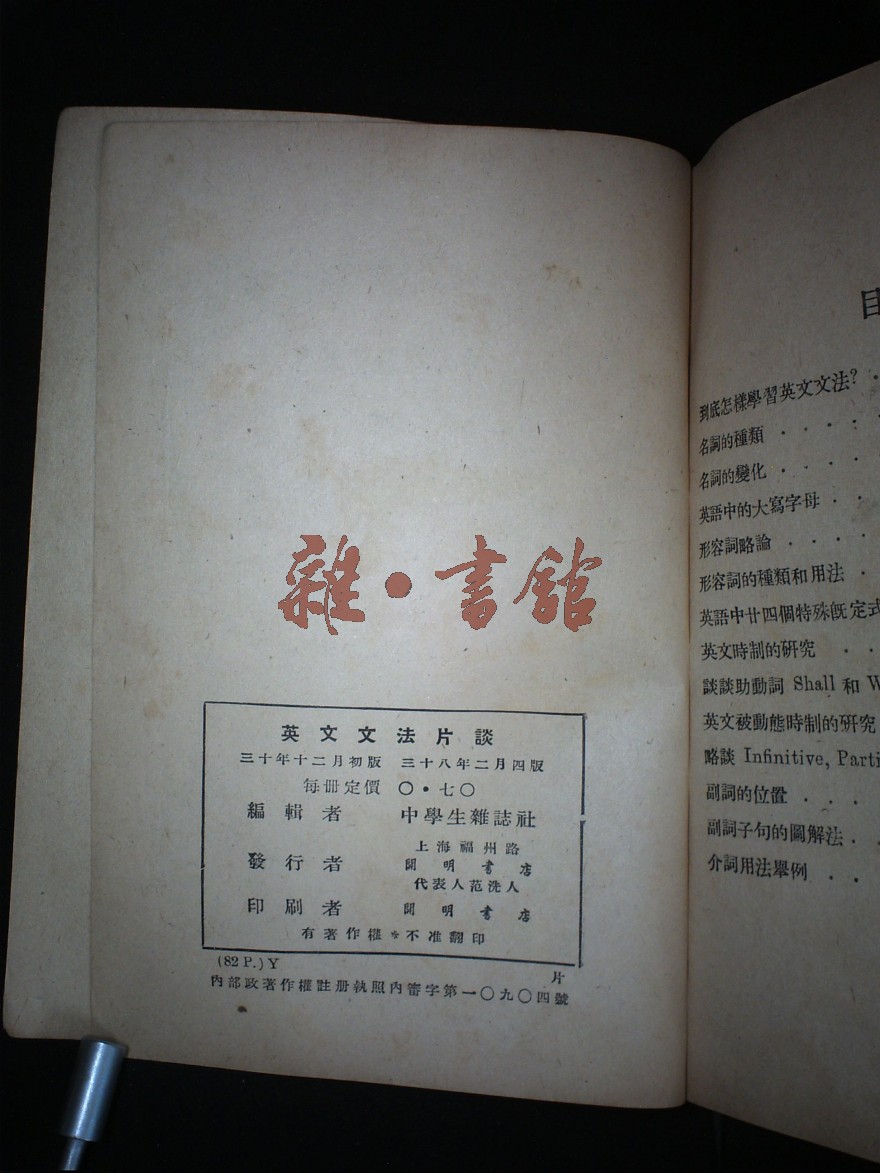 雜·書館
英文文法片談
三十年十二月初版 三十八年二月四版
每册定價 〇·七〇
編輯者 中學生雜誌社
上海福州路
發行者 開明書店
代表人范洗人
印刷者 開明書店
有著作權*不准翻印
(82 P.) Y 片
內部政著作權註册執照內審字第一〇九〇四號
目
到底怎樣學習英文文法? ·
名詞的種類 · · · · ·
名詞的變化 · · · · ·
英語中的大寫字母 · ·
形容詞略論 · · · ·
形容詞的種類和用法 ·
英語中廿四個特殊旣定式
英文時制的研究 · ·
談談助動詞 Shall 和 W
英文被動態時制的研究
略談 Infinitive, Parti
副詞的位置 · · ·
副詞子句的圖解法 · ·
介詞用法舉例 · ·